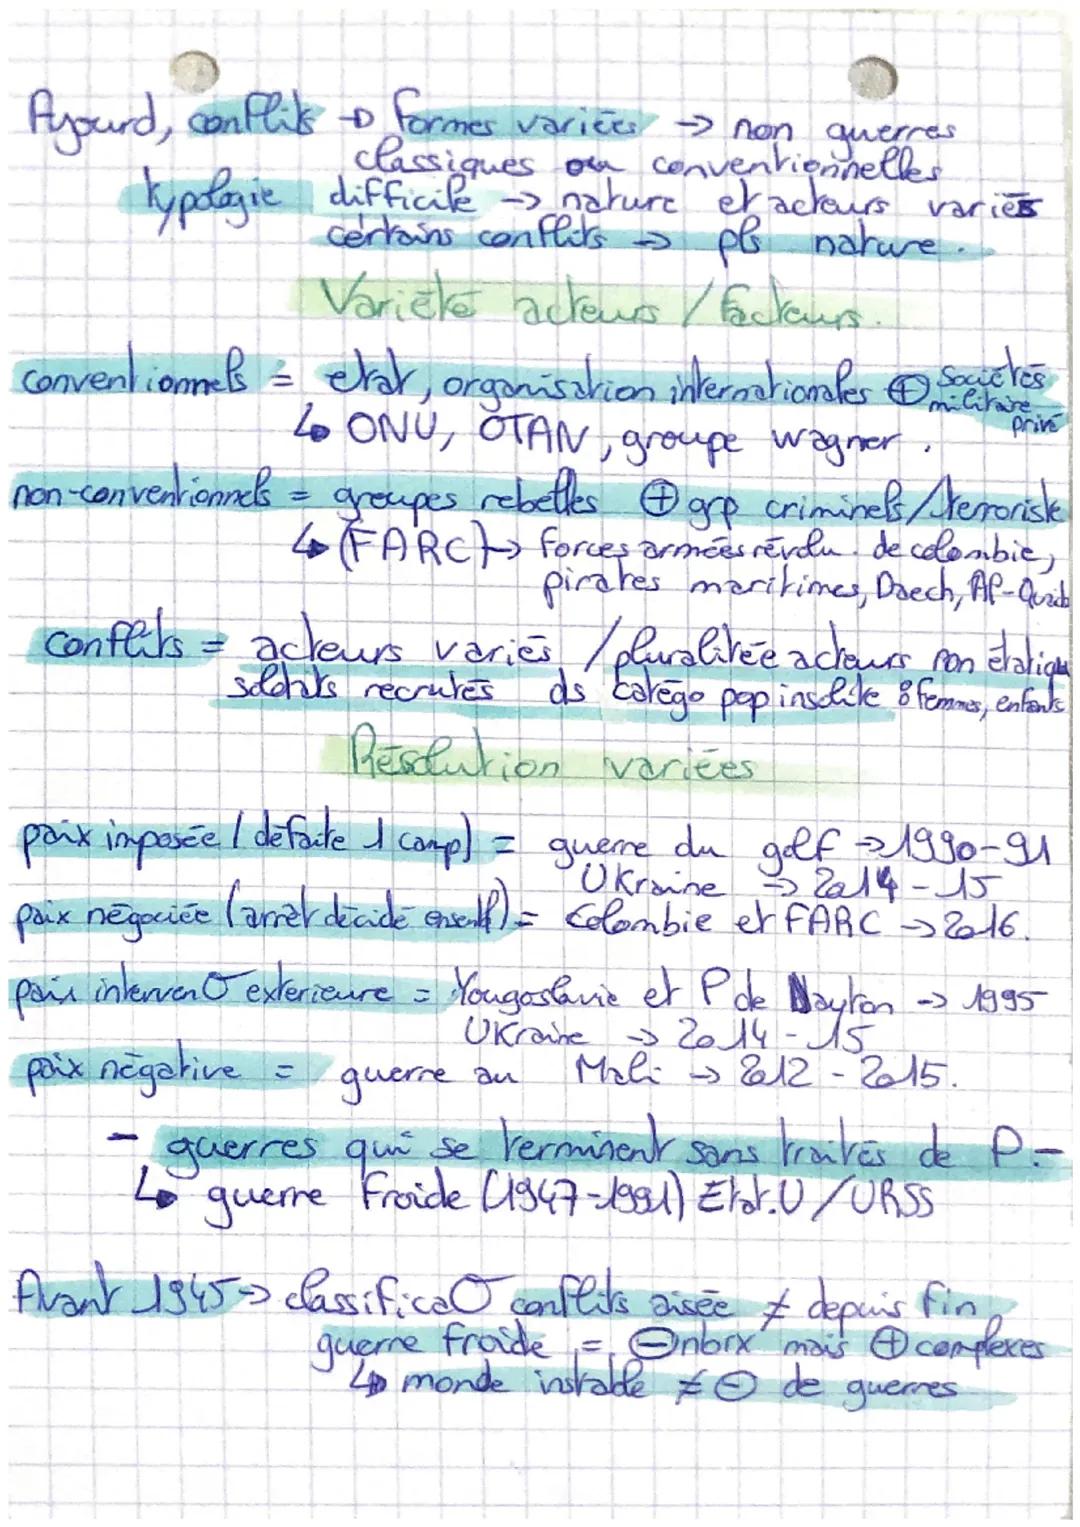 Ajourd, conflits → formes variées → non guerres
classiques ou conventionnelles
typologie difficile → nature et acteurs variés
certains conflits → pls nature.
Variété acteurs / facteurs.
conventionnels = etat, organisation internationales ⊕ Sociétés militaire privé
↳ ONU, OTAN, groupe wagner.
non-conventionnels = groupes rebelles ⊕ grp criminels/terroriste
↳ (FARC) → forces armées révolu. de colombie,
pirates maritimes, Daech, Al-Quaïd
conflits = acteurs variés / pluralitée acteurs non étatiqu
soldats recrutés ds catégo pop insolite : femmes, enfants
Résolution variées
paix imposée (défaite 1 camp) = guerre du golf → 1990-91
Ukraine → 2014-15
paix négociée (arrêt décidé ensembl) = Colombie et FARC → 2016.
paix interven∅ exterieure = Yougoslavie et P de Dayton → 1995
Ukraine → 2014-15
paix négative = guerre au Mali → 2012 - 2015.
- guerres qui se terminent sans traités de P. -
↳ guerre Froide (1947-1991) Etat.U / URSS
Avant 1945 → classifica∅ conflits aisée ≠ depuis fin
guerre froide = ⊖ nbrx mais ⊕ complexes
↳ monde instable ≠ ⊖ de guerres